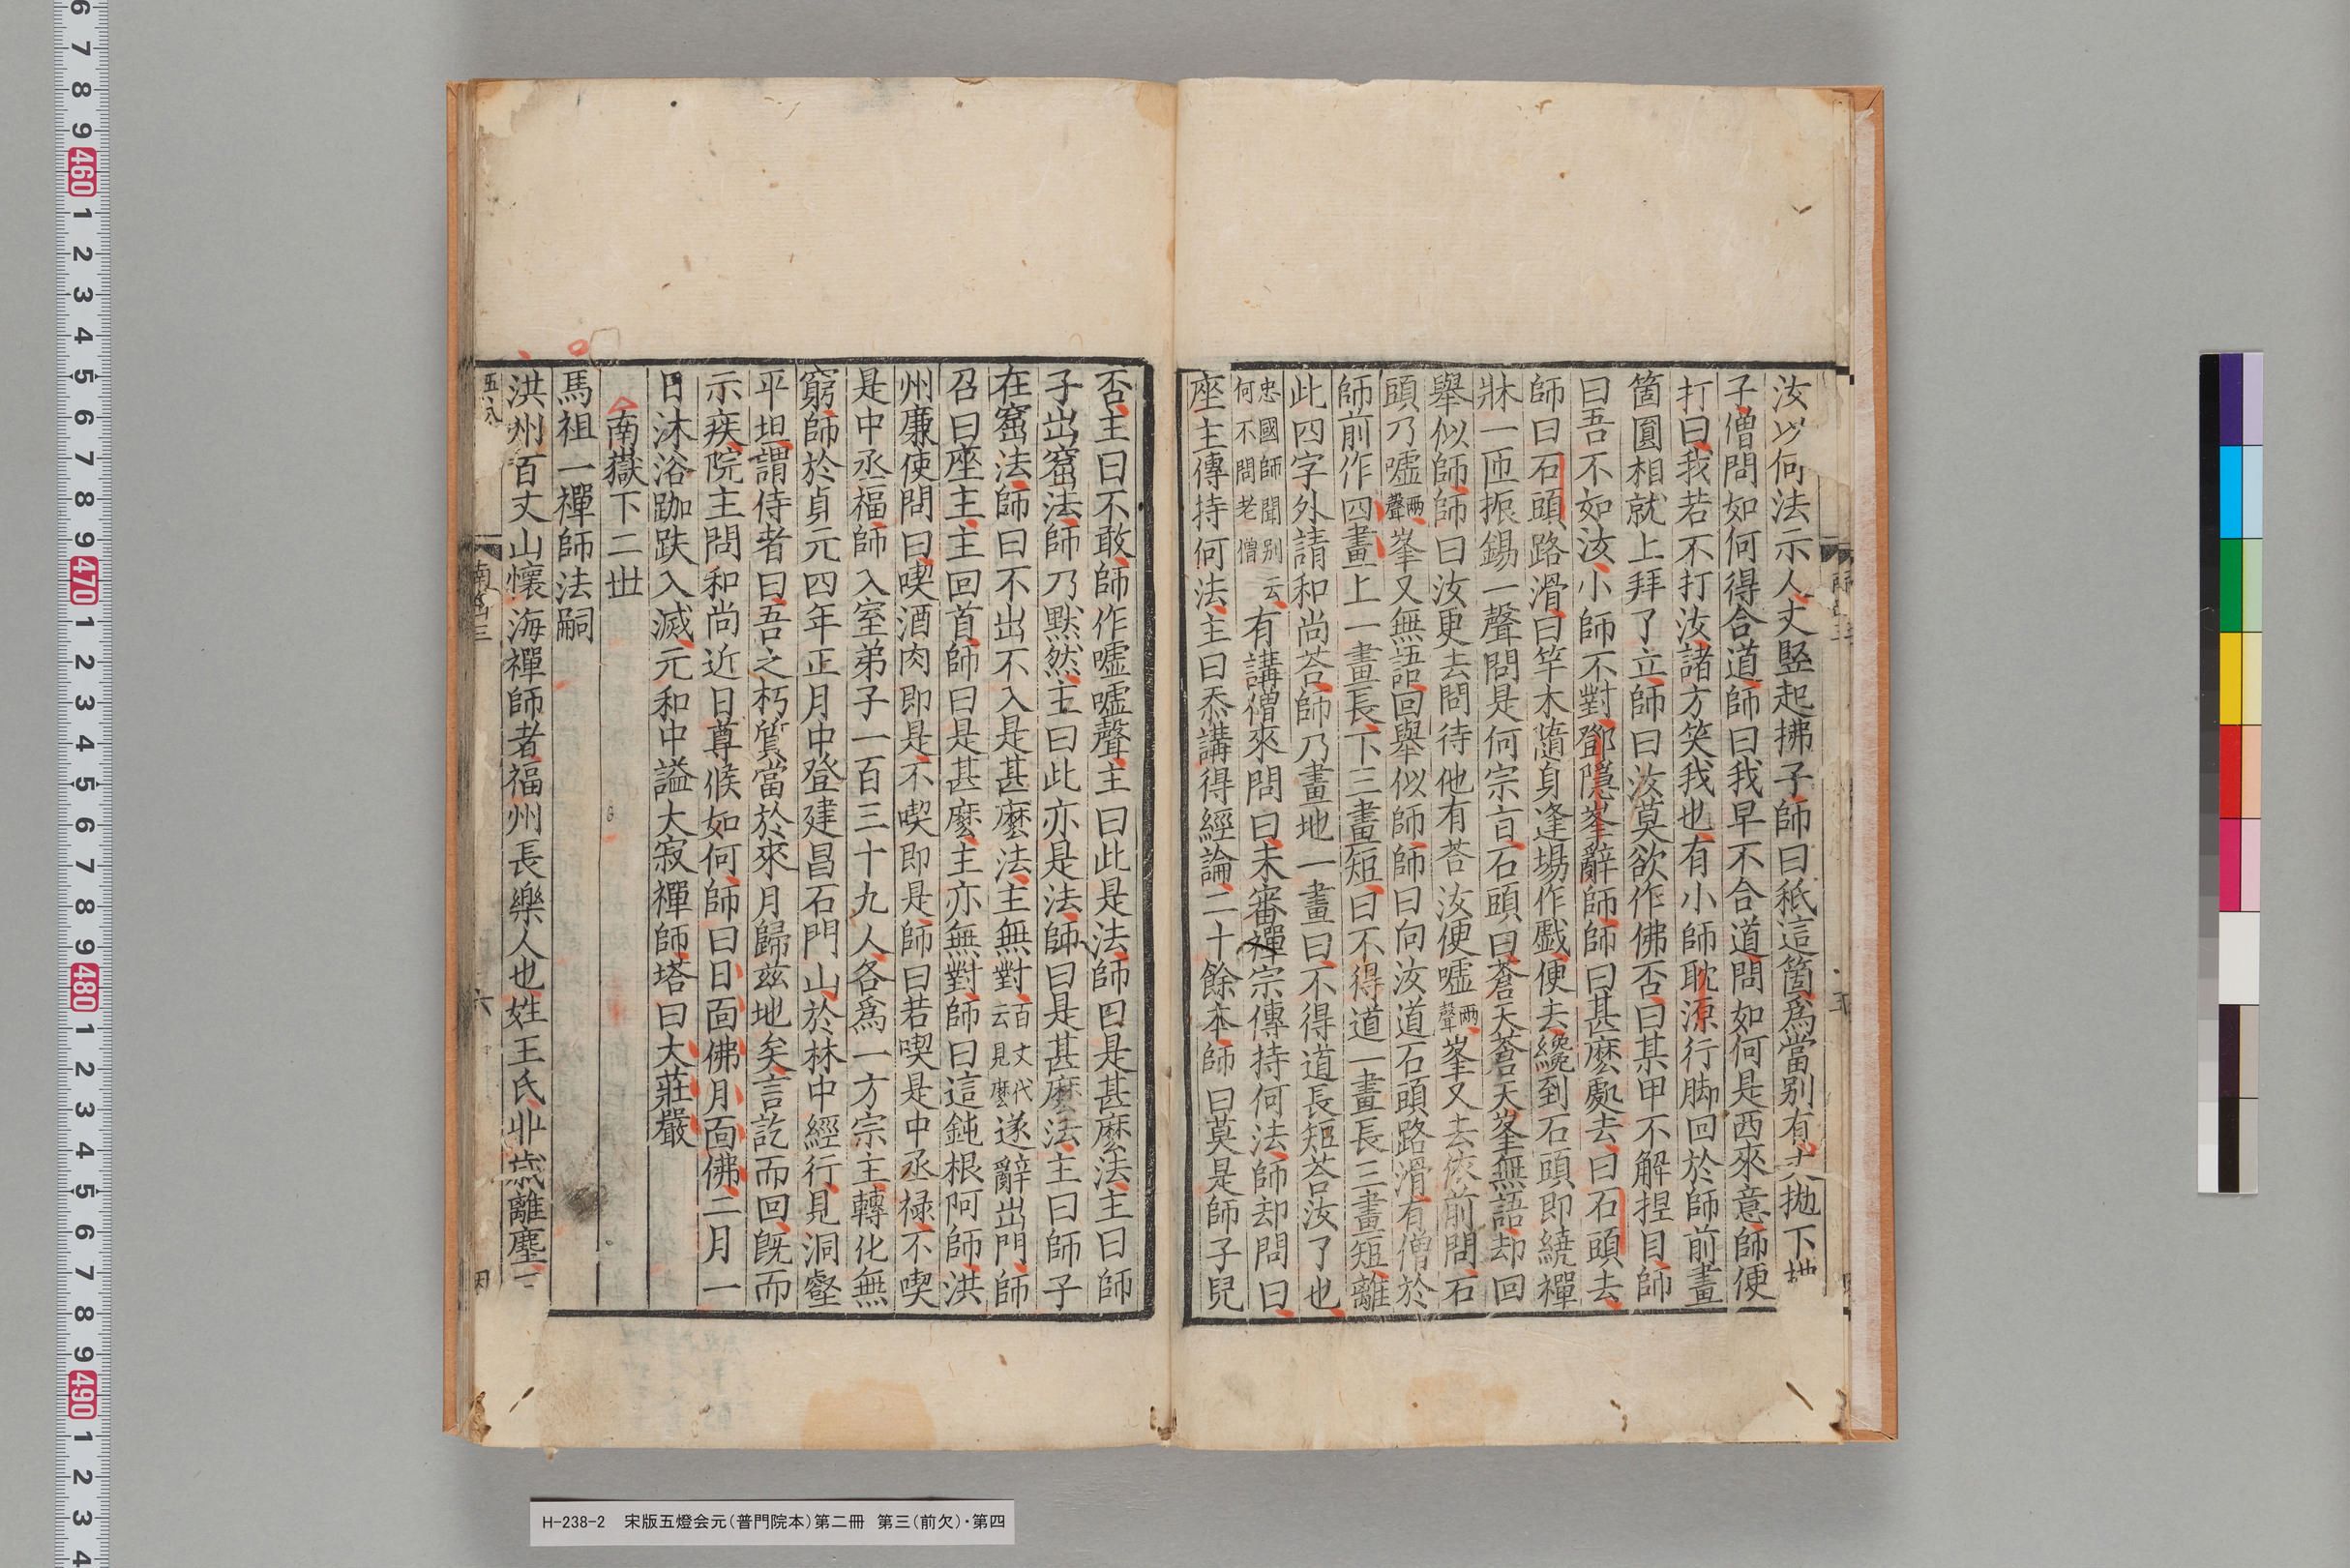 汝以何法示人丈竪起拂子師曰秪這箇爲當别有丈抛下拂
子僧問如何得合道師曰我早不合道問如何是西來意師便
打曰我若不打汝諸方笑我也有小師耽源行脚回於師前畫
箇圓相就上拜了立師曰汝莫欲作佛否曰某甲不解捏目師
曰吾不如汝小師不對鄧隱峯辭師師曰甚麽處去曰石頭去
師曰石頭路滑曰竿木隨身逢場作戲便去纔到石頭即繞禪
牀一匝振錫一聲問是何宗旨石頭曰蒼天蒼天峯無語却回
舉似師師曰汝更去問待他有荅汝便噓兩聲峯又去依前問石
頭乃噓兩聲峯又無語回舉似師師曰向汝道石頭路滑有僧於
師前作四畫上一畫長下三畫短曰不得道一畫長三畫短離
此四字外請和尚荅師乃畫地一畫曰不得道長短荅汝了也
忠國師聞别云何不問老僧有講僧來問曰未審禪宗傳持何法師却問曰
座主傳持何法主曰忝講得經論二十餘本師曰莫是師子兒
否主曰不敢師作噓噓聲主曰此是法師曰是甚麽法主曰師
子出窟法師乃默然主曰此亦是法師曰是甚麽法主曰師子
在窟法師曰不出不入是甚麽法主無對百丈代云見麽遂辭出門師
召曰座主主回首師曰是甚麽主亦無對師曰這鈍根阿師洪
州廉使問曰喫酒肉即是不喫即是師曰若喫是中丞禄不喫
是中丞福師入室弟子一百三十九人各爲一方宗主轉化無
窮師於貞元四年正月中登建昌石門山於林中經行見洞壑
平坦謂侍者曰吾之朽質當於來月歸兹地矣言訖而回旣而
示疾院主問和尚近日尊候如何師曰日面佛月面佛二月一
日沐浴跏趺入滅元和中謚大寂禪師塔曰大莊嚴
南嶽下二世
馬祖一禪師法嗣
洪州百丈山懷海禪師者福州長樂人也姓王氏丱歲離塵三
六
H-238-2　宋版五燈会元（普門院本）第二冊　第三（前欠）・第四